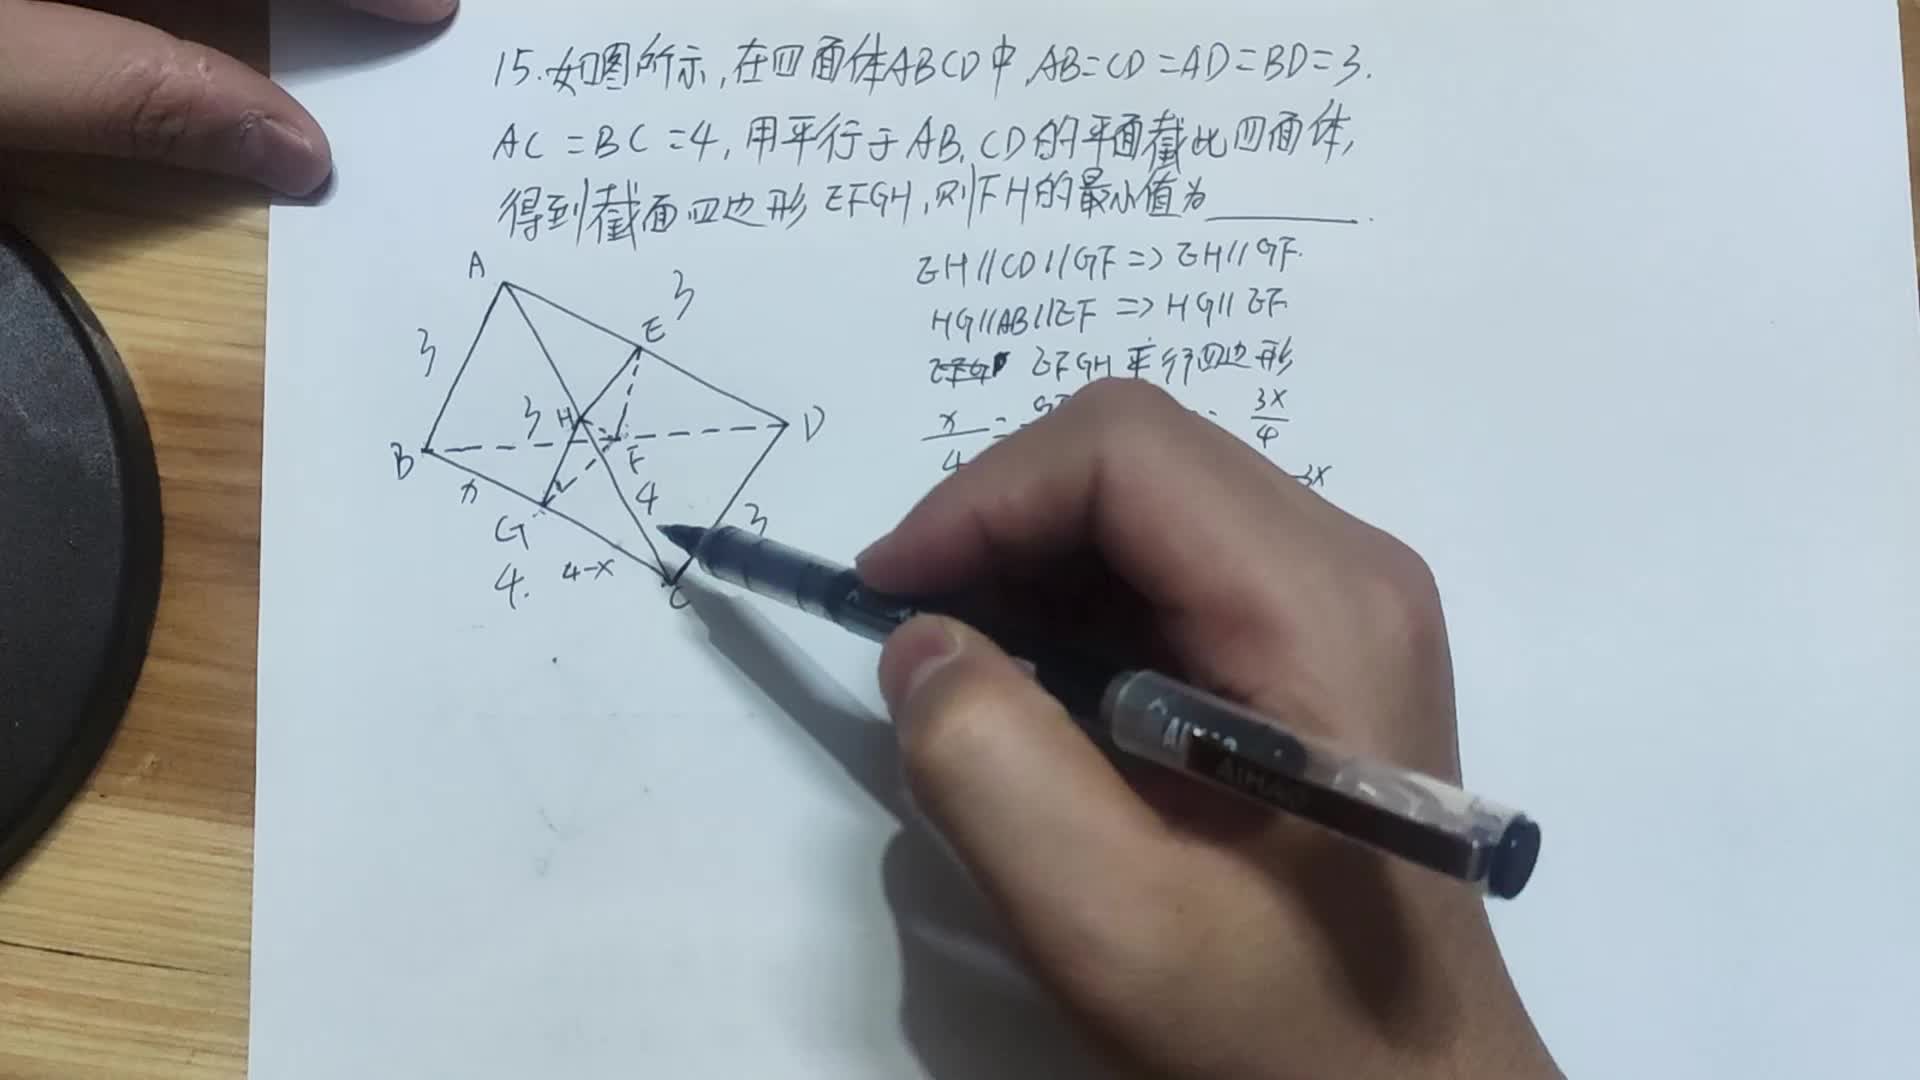 15.如图所示,在四面体ABCD中,AB=CD=AD=BD=3.
AC=BC=4,用平行于AB,CD的平面截此四面体,
得到截面四边形EFGH,则FH的最小值为______.
EH//CD//GF=>EH//GF.
HG//AB//EF=>HG//EF
EFGH平行四边形
x/4=
3x/4
3x
A
3
E
3
3
H
D
B
F
x
4
G
3
4.
4-x
C